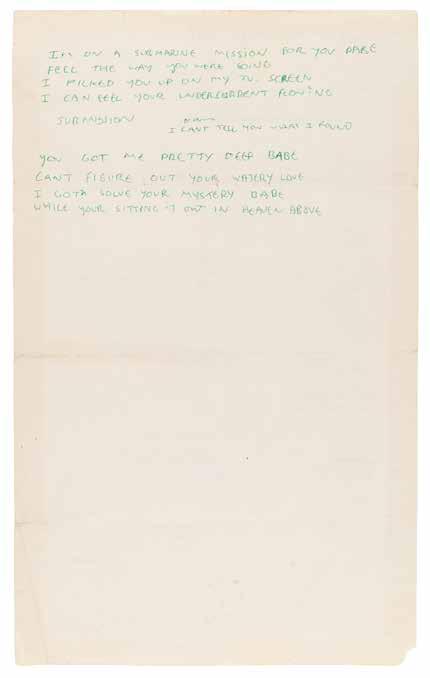 IM ON A SUBMARINE MISSION FOR YOU BABE
FEEL THE WAY YOU WERE GOING
I PICKED YOU UP ON MY TV. SCREEN
I CAN FEEL YOUR UNDERCURRENT FLOWING
SUBMISSION
I CANT TELL YOU WHAT I FOUND
YOU GOT ME PRETTY DEEP BABE
CANT FIGURE OUT YOUR WATERY LOVE
I GOTA SOLVE YOUR MYSTERY BABE
WHILE YOUR SITTING IT OUT IN HEAVEN ABOVE